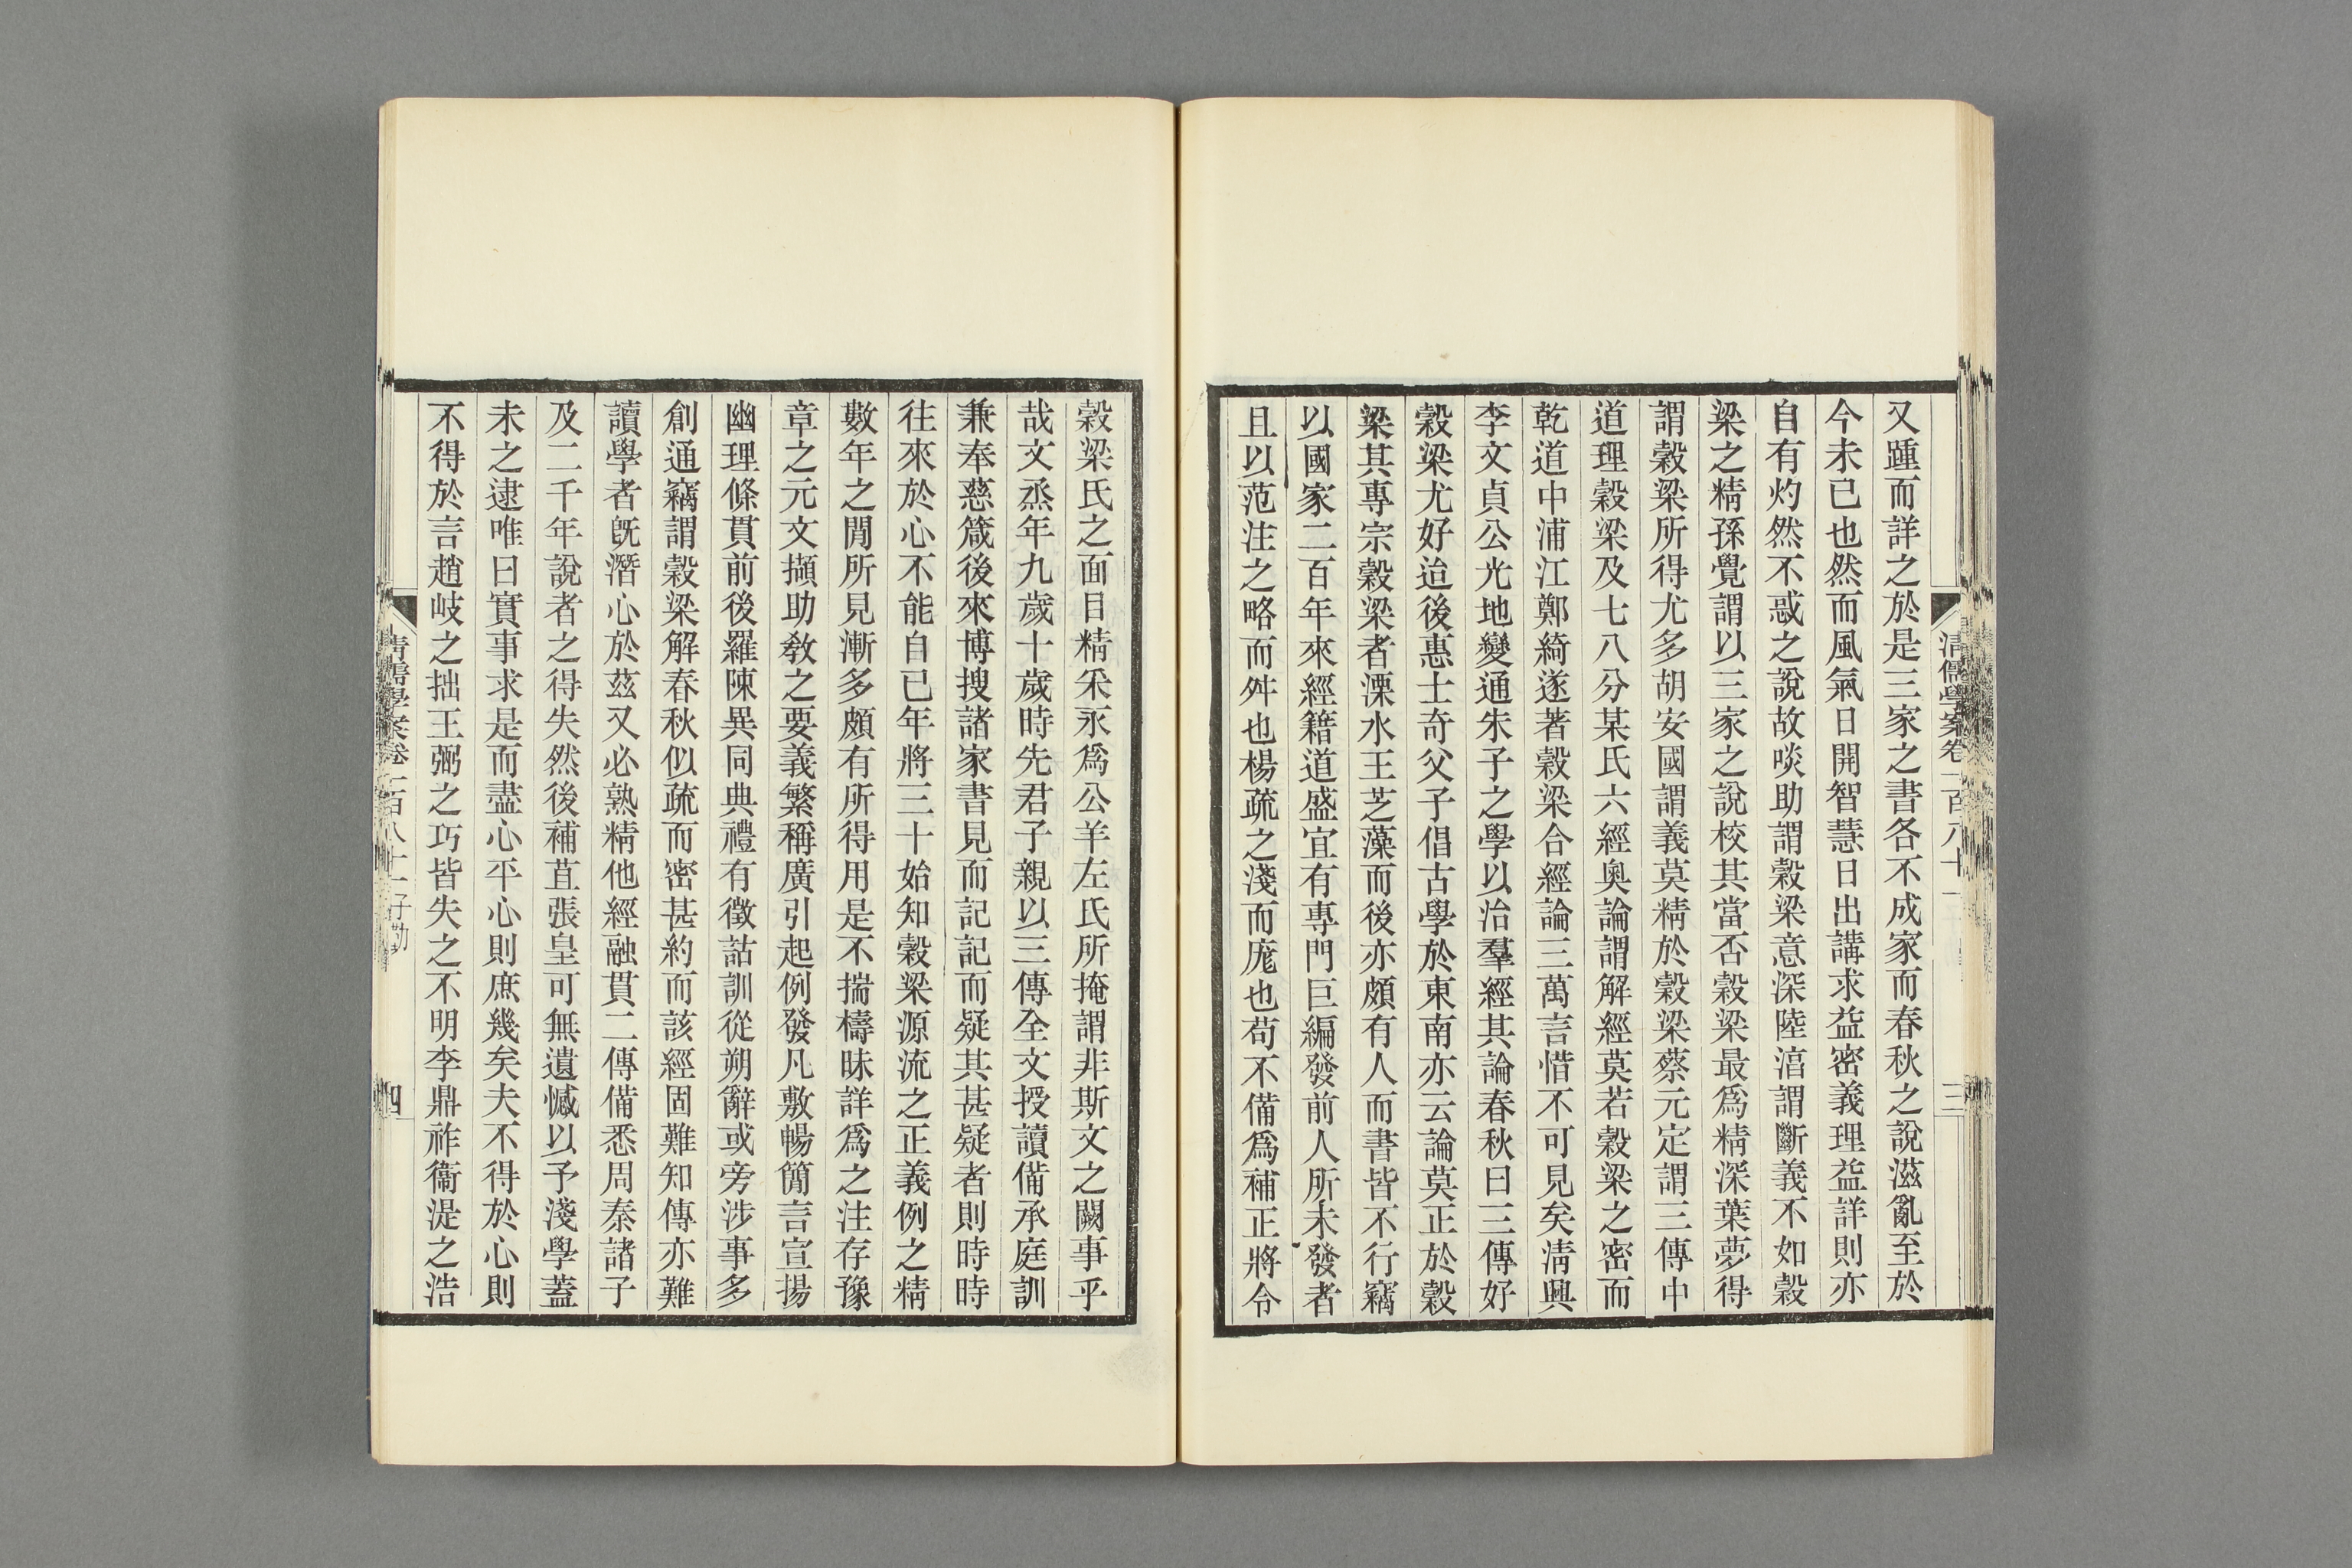 清儒學案卷一百八十一
三
又踵而詳之於是三家之書各不成家而春秋之說滋亂至於
今未已也然而風氣日開智慧日出講求益密義理益詳則亦
自有灼然不惑之說故啖助謂穀梁意深陸淳謂斷義不如穀
梁之精孫覺謂以三家之說校其當否穀梁最爲精深葉夢得
謂穀梁所得尤多胡安國謂義莫精於穀梁蔡元定謂三傳中
道理穀梁及七八分某氏六經奧論謂解經莫若穀梁之密而
乾道中浦江鄭綺遂著穀梁合經論三萬言惜不可見矣淸興
李文貞公光地變通朱子之學以治羣經其論春秋曰三傳好
穀梁尤好迨後惠士奇父子倡古學於東南亦云論莫正於穀
梁其專宗穀梁者溧水王芝藻而後亦頗有人而書皆不行竊
以國家二百年來經籍道盛宜有專門巨編發前人所未發者
且以范注之略而舛也楊疏之淺而厖也苟不備爲補正將令
穀梁氏之面目精采永爲公羊左氏所掩謂非斯文之闕事乎
哉文烝年九歲十歲時先君子親以三傳全文授讀備承庭訓
兼奉慈箴後來博搜諸家書見而記記而疑其甚疑者則時時
往來於心不能自已年將三十始知穀梁源流之正義例之精
數年之閒所見漸多頗有所得用是不揣檮昧詳爲之注存豫
章之元文擷助敎之要義繁稱廣引起例發凡敷暢簡言宣揚
幽理條貫前後羅陳異同典禮有徵詁訓從朔辭或旁涉事多
創通竊謂穀梁解春秋似疏而密甚約而該經固難知傳亦難
讀學者旣潛心於茲又必熟精他經融貫二傳備悉周秦諸子
及二千年說者之得失然後補苴張皇可無遺憾以予淺學蓋
未之逮唯曰實事求是而盡心平心則庶幾矣夫不得於心則
不得於言趙岐之拙王弼之巧皆失之不明李鼎祚衞湜之浩
清儒學案卷一百八十一 子勤
四